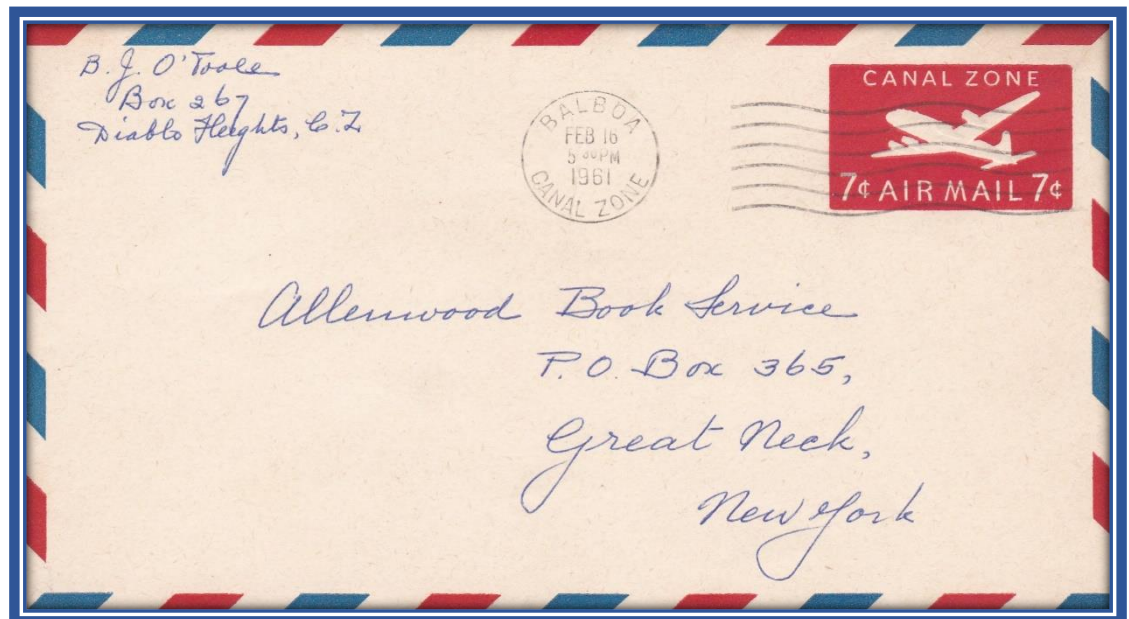 B. J. O'Toole
Box 267
Diablo Heights, C. Z
BALBOA
FEB 16
5 30 PM
1961
CANAL ZONE
CANAL ZONE
7¢ AIR MAIL 7¢
Allenwood Book Service
P. O. Box 365,
Great Neck,
New York